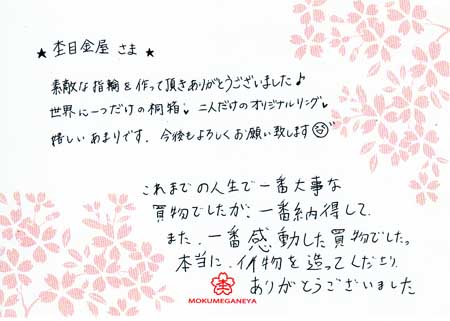 ★ 杢目金屋 さま ★
素敵な指輪を作って頂きありがとうございました♪
世界に一つだけの桐箱、二人だけのオリジナルリング
嬉しいあまりです。今後もよろしくお願い致します
これまでの人生で一番大事な
買物でしたが、一番納得して、
また、一番感動した買物でした。
本当に、イイ物を造ってくださり
ありがとうございました
MOKUMEGANEYA